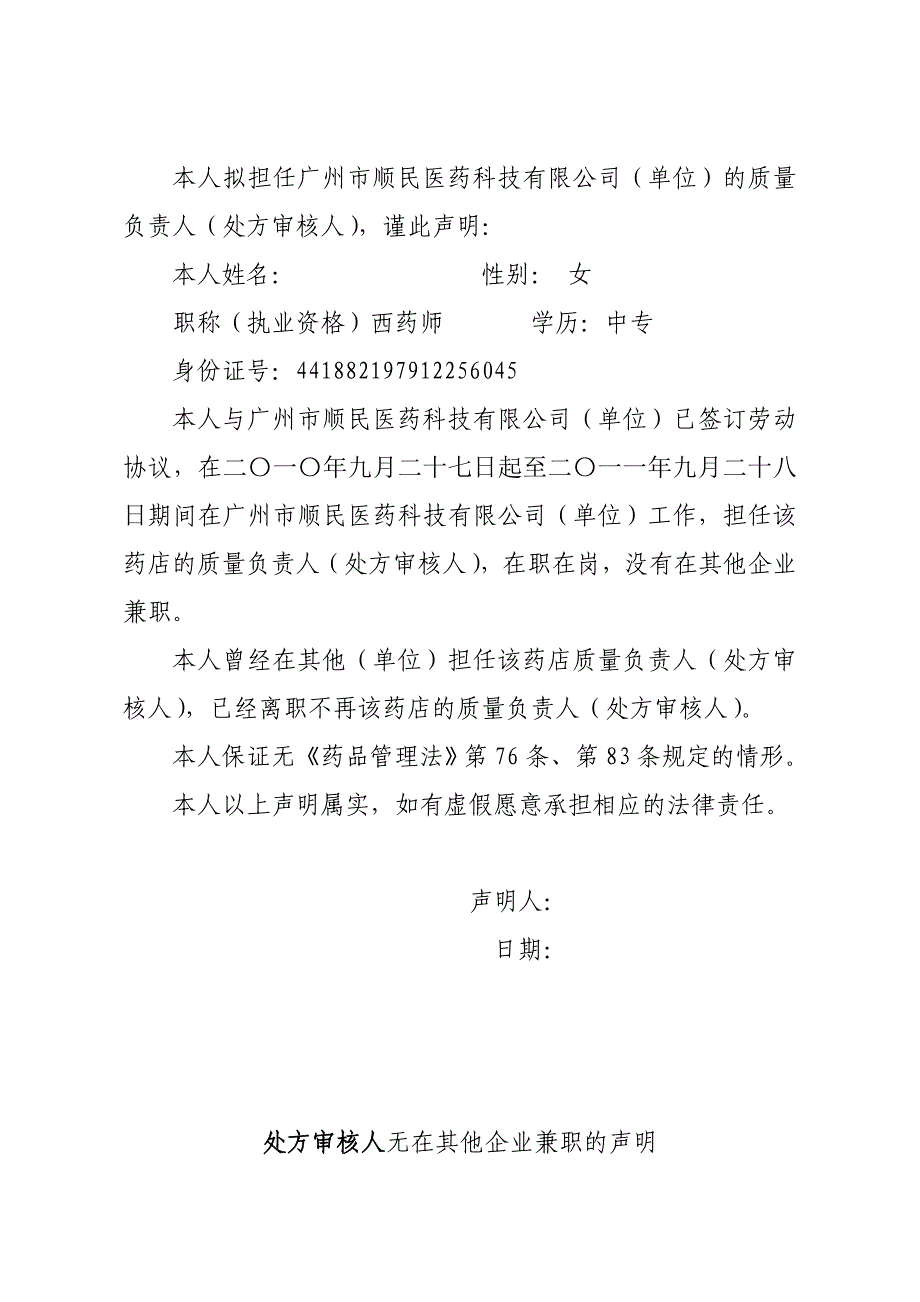 本人拟担任广州市顺民医药科技有限公司（单位）的质量
负责人（处方审核人），谨此声明：
本人姓名： 性别： 女
职称（执业资格）西药师 学历：中专
身份证号：441882197912256045
本人与广州市顺民医药科技有限公司（单位）已签订劳动
协议，在二〇一〇年九月二十七日起至二〇一一年九月二十八
日期间在广州市顺民医药科技有限公司（单位）工作，担任该
药店的质量负责人（处方审核人），在职在岗，没有在其他企业
兼职。
本人曾经在其他（单位）担任该药店质量负责人（处方审
核人），已经离职不再该药店的质量负责人（处方审核人）。
本人保证无《药品管理法》第 76 条、第 83 条规定的情形。
本人以上声明属实，如有虚假愿意承担相应的法律责任。
声明人：
日期：
处方审核人无在其他企业兼职的声明